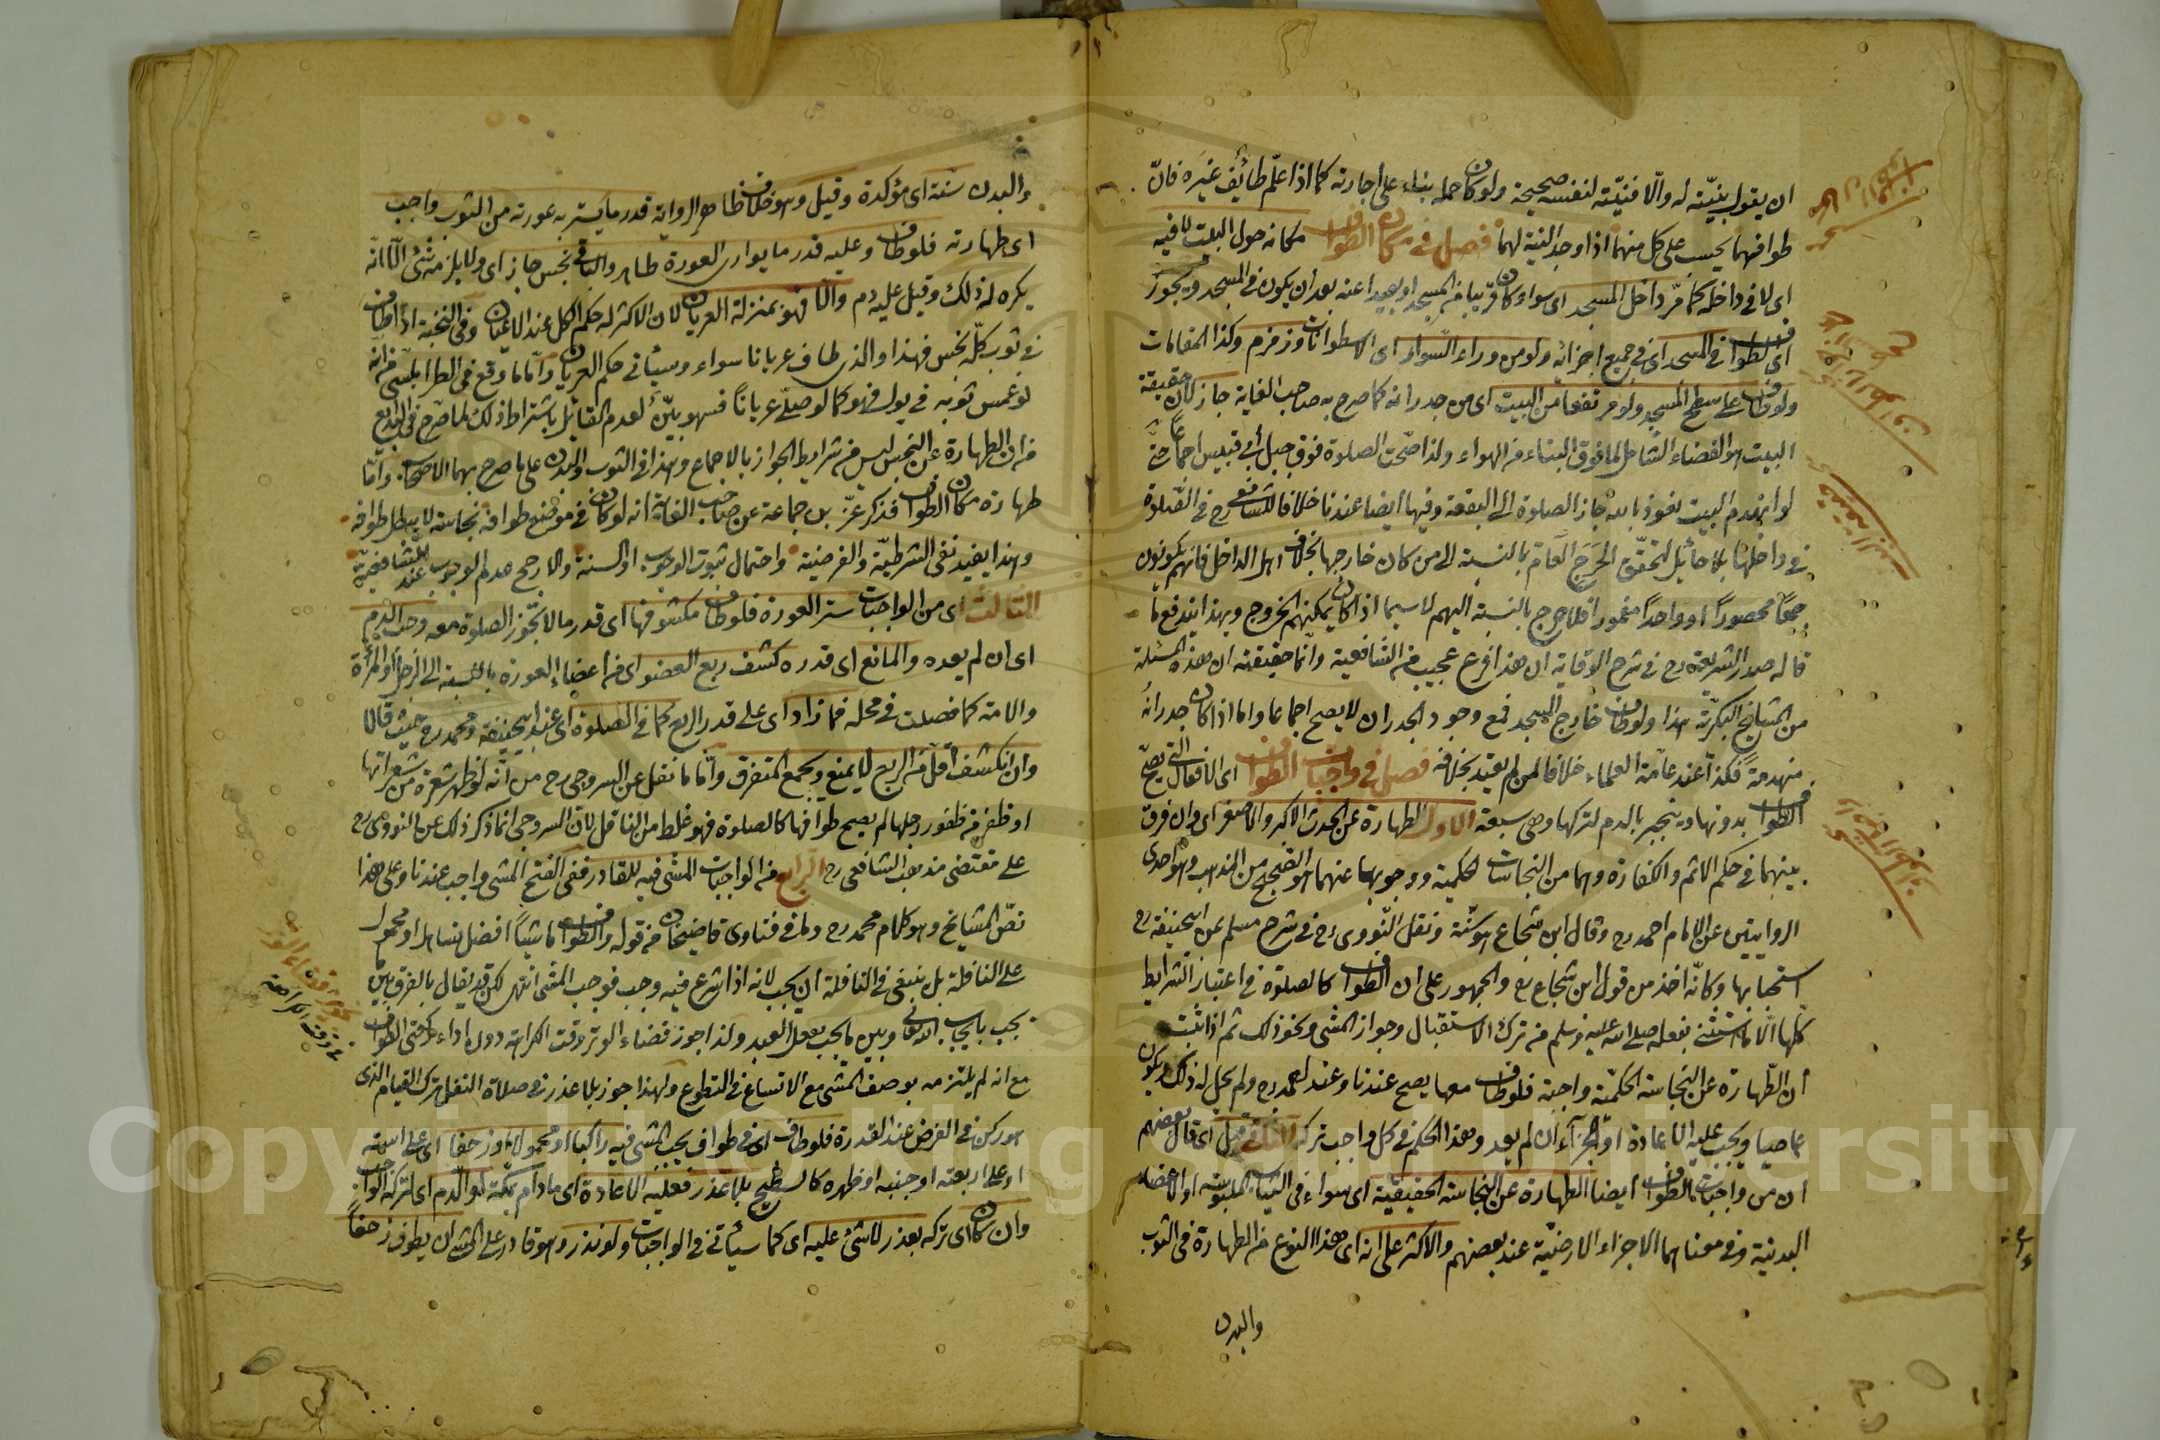 ان يقول بنيّته له والّا فنيّته لنفسه صحيحة ولو كان حمله بناء على اجارته كما اذا علّم طائف غيره فانّ
طوافهما يحسب على كل منهما اذا وجد النية لهما فصل في مكان الطواف مكانه حول البيت لا فيه
اى لا في داخله كما مرّ داخل المسجد اى سواء كان قريبا من المسجد او بعيدا عنه بعد ان يكون في المسجد ويجوز
اى الطواف في المسجد اى في جميع اجزائه ولو من وراء السوارى اى الاسطوانات وزمزم وكذا المقامات
ولو طاف على سطح المسجد ولو مرتفعا من البيت اى من جدرانه كما صرح به صاحب الغاية جاز لان حقيقة
البيت هو الفضاء الشامل لما فوق البناء من الهواء ولذا صحّت الصلوة فوق جبل أبي قبيس اجماعا حتى
لو انهدم البيت نعوذ بالله جاز الصلوة الى البقعة وفيها ايضا عندنا خلافا للشافعى رح في الصّلوة
في داخلها بلا حائل لتحقّق الحرج العام بالنسبة الى من كان خارجها بخلاف اهل الداخل فانهم يكونون
جمعًا محصوراً او واحداً مغمورا فلا حرج بالنسبة اليهم لاسيما اذا كان يمكنهم الخروج وبهذا يندفع ما
قاله صدر الشريعة رح في شرح الوقاية ان هذا فرع عجيب من الشافعية وانّما حقيقته ان هذه المسئلة
من المشايخ البكرية هذا ولو طاف خارج المسجد فمع وجود الجدران لا يصح اجماعا واما اذا كان جدرانه
منهدمة فكذا عند عامّة العلماء خلافا لمن لم يعتد بخلافه فصل في واجبات الطواف اى الافعال التى يصحّ
الطواف بدونها وينجبر بالدم لتركها وهى سبعة الاول الطهارة عن الحدث الاكبر والاصغر اى وان فرق
بينهما في حكم الاثم والكفارة وهما من النجاسات الحكمية ووجوبها عنهما هو الصّحيح من المذهب وهو احدى
الروايتين عن الامام احمد رح وقال ابن شجاع هو سنّة ونقل النّووى رح في شرح مسلم عن ابيحنيفة رح
استحبابها وكانّه اخذ من قول ابن شجاع رح والجمهور على ان الطواف كالصلوة في اعتبار الشرايط
كلها الّا ما استثنى بفعله صلى الله عليه وسلم من ترك الاستقبال وجواز المشى ونحو ذلك ثم اذا ثبت
ان الطّهارة عن النجاسة الحكميّة واجبة فلو طاف معها يصح عندنا وعند احمد رح ولم يحل له ذلك ويكون
عاصيا ويجب عليه الاعادة او الجزاء ان لم يعد وهذا الحكم في كل واجب تركه الثاني قيل اى قال بعضهم
ان من واجبات الطواف ايضا الطهارة عن النجاسة الحقيقيّة اى سواء في الثياب الملبوسة او الاعضاء
البدنية وفي معناهما الاجزاء الارضيّة عند بعضهم والاكثر على انه اى هذا النوع من الطهارة في الثوب
والبدن
والبدن سنة اى مؤكدة وقيل وهو خلاف ظاهر الرواية قدر ما يستر به عورته من الثوب واجب
اى طهارته فلو طاف وعليه قدر ما يوارى العورة طاهر والباقى نجس جاز اى ولا يلزمه شئ الّا انّه
يكره له ذلك وقيل عليه دم والّا فهو بمنزلة العريان لان الاكثر له حكم الكل عند الاعيان وفي النخبة اذا طاف
في ثوب كلّه نجس فهذا والذى طاف عريانا سواء وسيأتى حكم العريان وامّا ما وقع فى الطرابلسى من انّه
لو غمس ثوبه في بول فهو كما لو صلّى عرياناً فسهو بيّن لعدم القائل باشتراط ذلك لما صرّح فى البدايع
من ان الطهارة عن النجس ليس من شرايط الجواز بالاجماع وهذا في الثوب والبدن على ما صرح بهما الاصحاب وامّا
طهارة مكان الطواف فذكر عزّ بن جماعة عن صاحب الغاية انه لو كان في موضع طوافه نجاسة لا يبطل طوافه
وهذا يفيد نفى الشرطيّة والفرضية واحتمال ثبوت الوجوب او السنة والارجح عدم الوجوب عند الشافعيّة
الثالث اى من الواجبات ستر العورة فلو طاف مكشوفها اى قدر ما لا تجوز الصلوة معه وجب الدم
اى ان لم يعده والمانع اى قدره كشف ربع العضو اى من اعضاء العورة بالنسبة الى الرجل والمرأة
والامة كما فصلت في محله فما زاد اى على قدر الربع كما في الصلوة اى عند ابيحنيفة ومحمد رح حيث قالا
وان انكشف اقلّ من الربع لا يمنع ويجمع المتفرق وامّا ما نقل عن السروجى رح من انّه لو ظهر شعرة من شعراتها
او ظفر من ظفور رجلها لم يصح طوافها كالصلوة فهو غلط من الناقل لان السروجى انما ذكر ذلك عن النووى رح
على مقتضى مذهب الشافعى رح الرابع من الواجبات المشى فيه للقادر ففى الفتح المشى واجب عندنا وعلى هذا
نصّ المشايخ وهو كلام محمد رح وما في فتاوى قاضيخان من قوله والطواف ماشيا افضل تساهل او محمول
على النافلة بل ينبغى في النافلة ان يجب لانه اذا شرع فيه وجب فوجب المشى انتهى لكن قد يقال بالفرق بين
يجب بايجاب الله تعالى وبين ما يجب بفعل العبد ولذا جوز قضاء الوتر وقت الكراهة دون اداء ركعتى الطواف
مع انه لم يلتزمه بوصف المشى مع الاتساع في التطوع ولهذا جوز بلا عذر في صلاة النفل ترك القيام الذى
هو ركن في الفرض عند القدرة فلو طاف اى في طواف يجب المشى فيه راكبا او محمولا او زحفا اى على استه
او على اربعته او جنبه او ظهره كالسطيح بلا عذر فعليه الاعادة اى ما دام بمكّة او الدّم اى لتركه الواجب
وان كان اى تركه بعذر لا شئ عليه اى كما سيأتى في الواجبات ولو نذر وهو قادر على المشى ان يطوف زحفاً